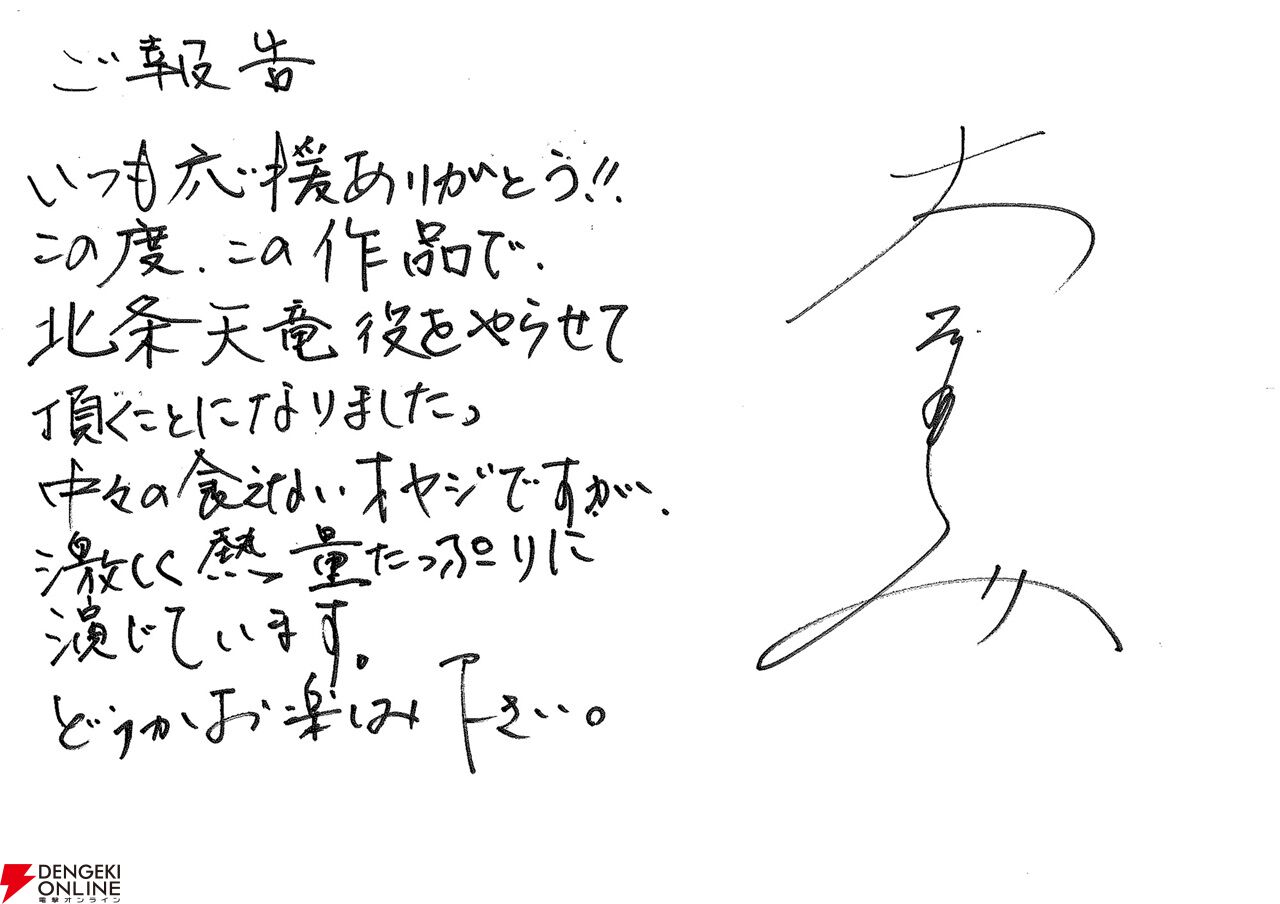 ご報告
いつも応援ありがとう!!
この度、この作品で、
北条天竜役をやらせて
頂くことになりました。
中々の食えないオヤジですが、
激しく熱量たっぷりに
演じています。
どうかお楽しみ下さい。
DENGEKI
ONLINE
電撃オンライン